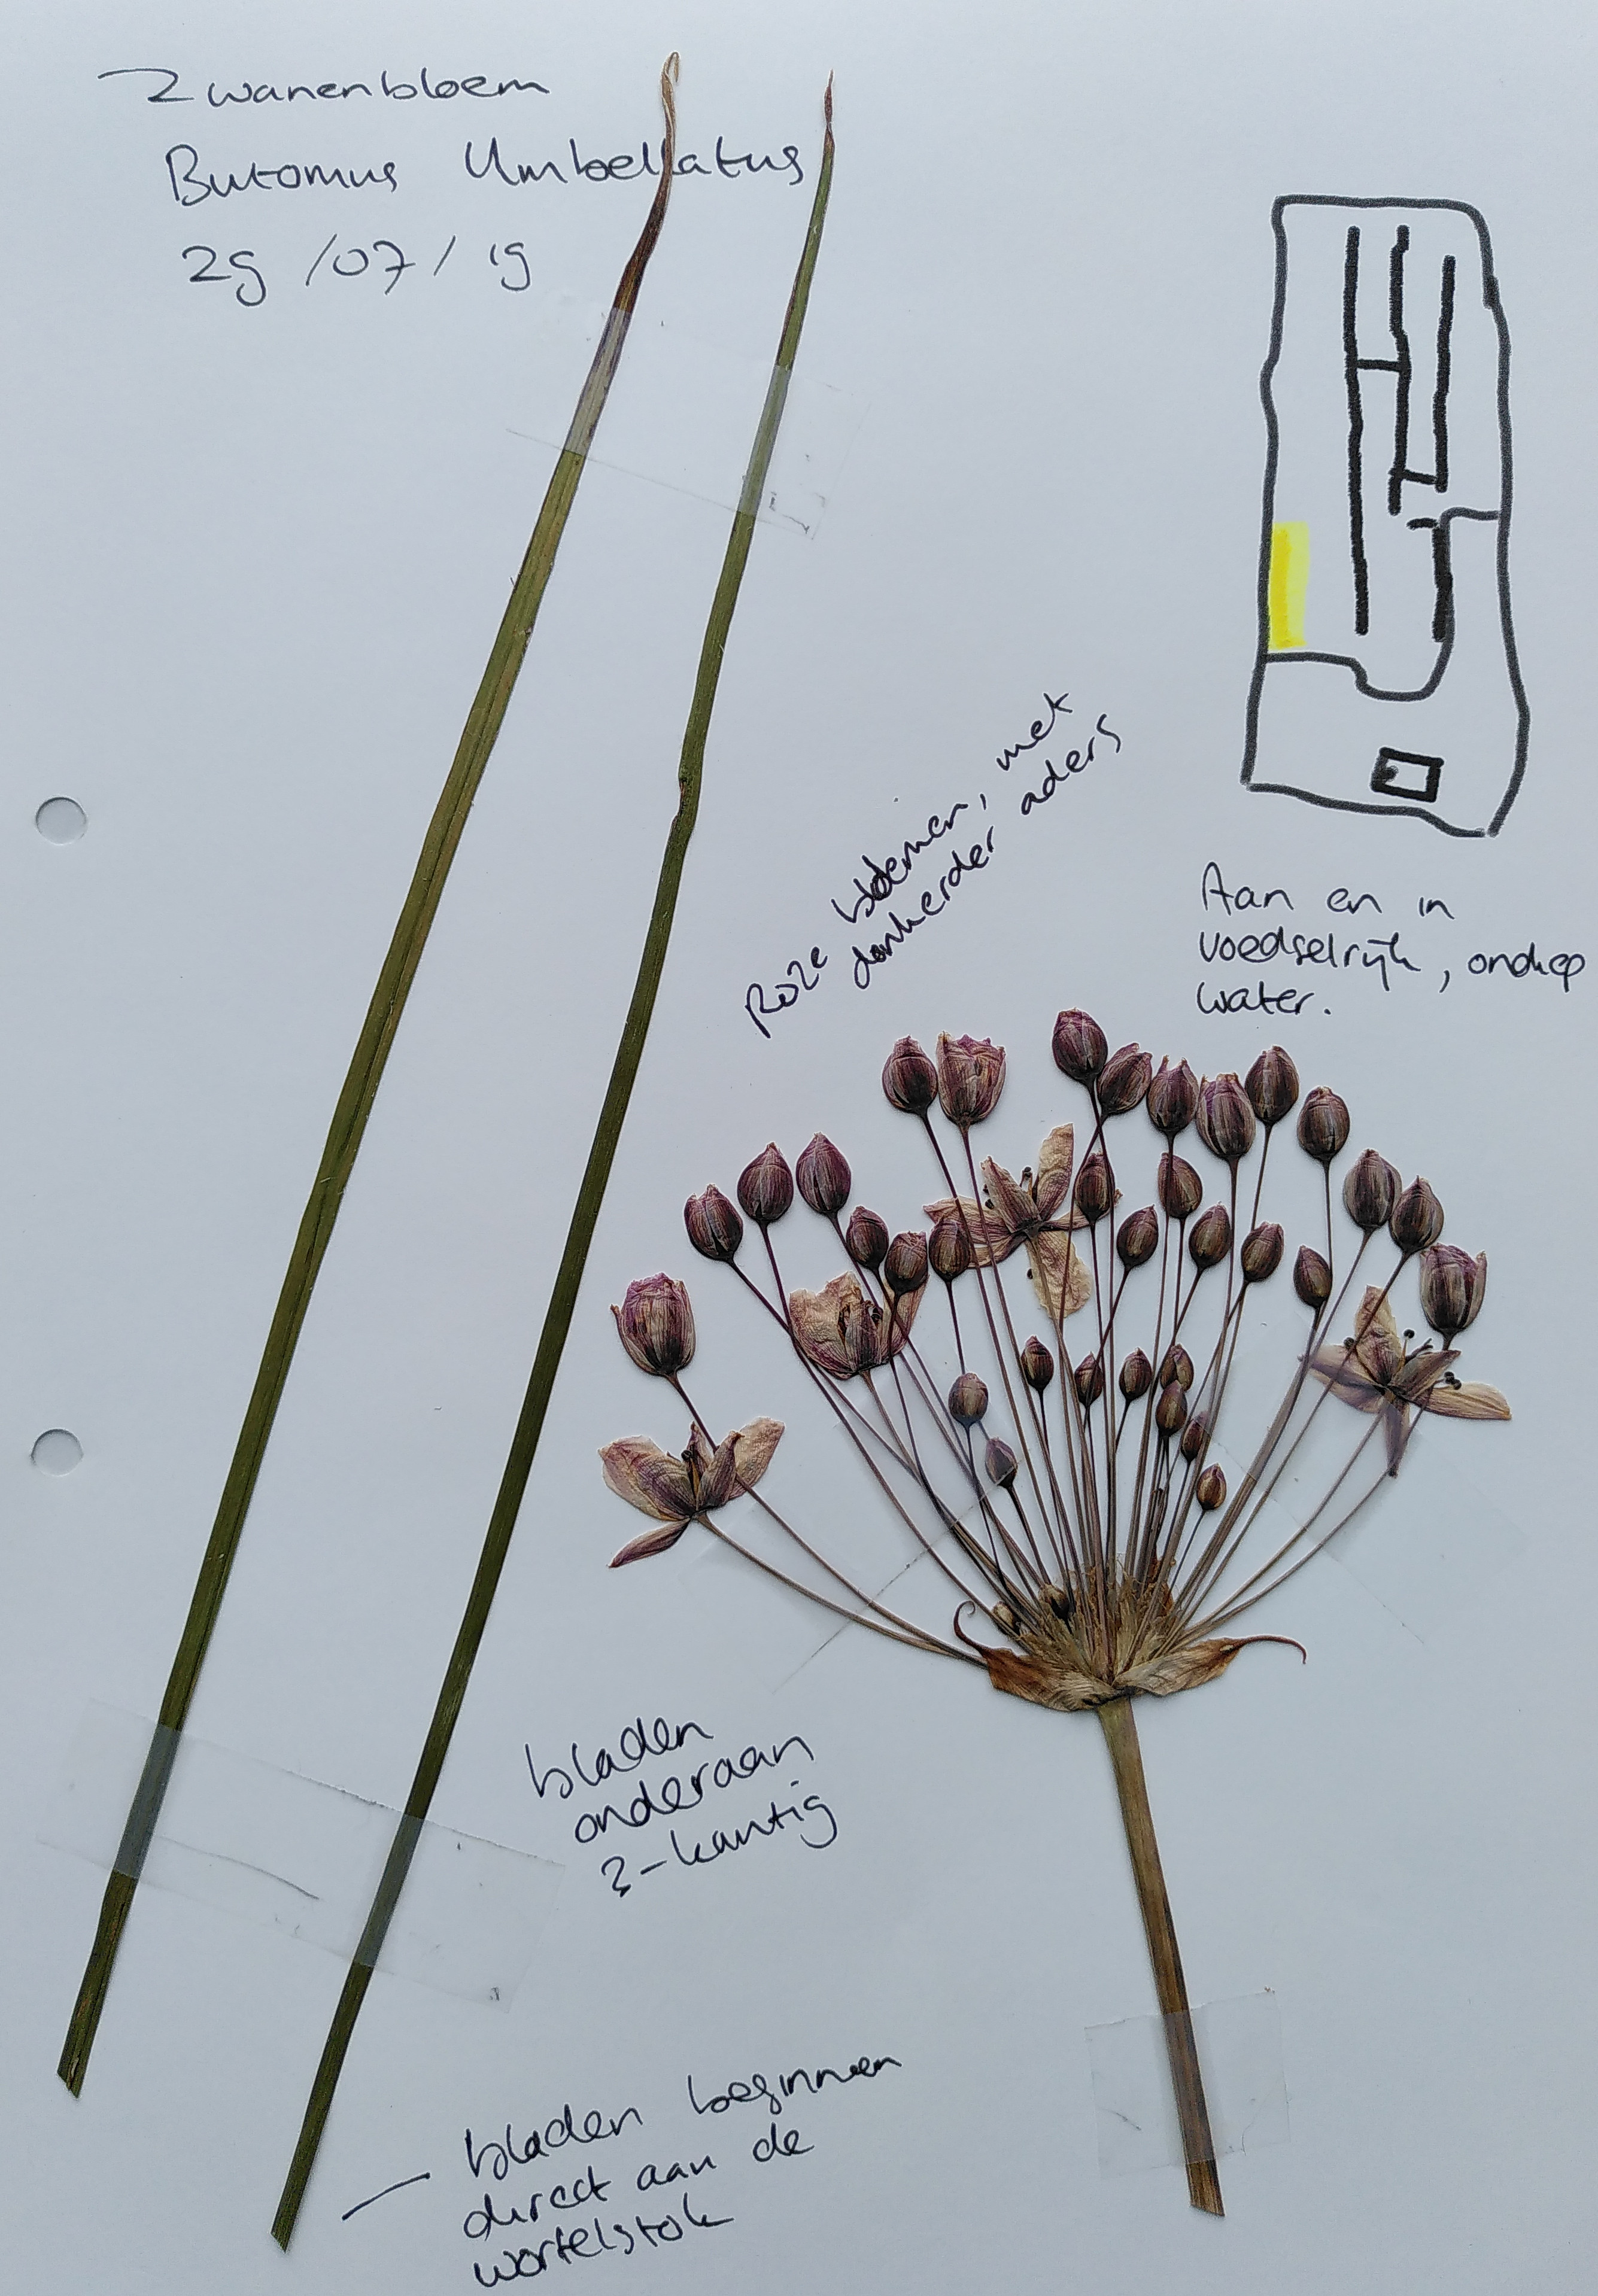 Zwanenbloem
Butomus Umbellatus
29/07/19
Roze bloemen, met
donkerder aders
Aan en in
voedselrijk, ondiep
water.
bladen
onderaan
3-kantig
bladen beginnen
direct aan de
wortelstok